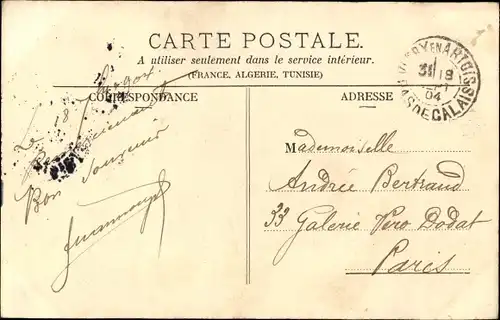 CARTE POSTALE.
A utiliser seulement dans le service intérieur.
(FRANCE, ALGERIE, TUNISIE)
CORRESPONDANCE
ADRESSE
EN ARTOIS
31 18
04
PAS DE CALAIS
18
Bon Souvenir
Mademoiselle
Andrée Bertrand
33 Galerie Vero Dodat
Paris